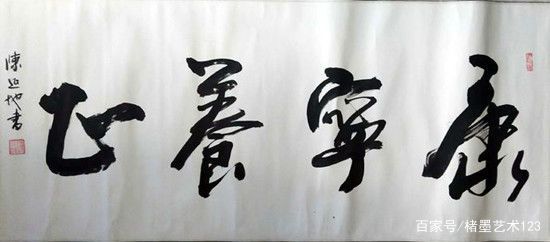 康寧養正
陳地書
百家号/楮墨艺术123